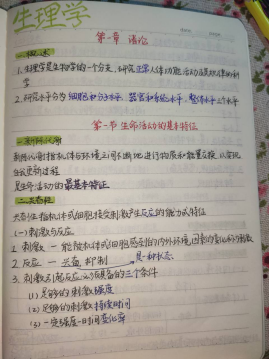 生理学
第一章 绪论
一.概述
1.生理学是生物学的一个分支,研究正常人体功能活动及其规律的科
学
2.研究水平分为细胞和分子水平、器官和系统水平、整体水平三个水平
第一节 生命活动的基本特征
一.新陈代谢
新陈代谢指机体与环境之间不断地进行物质和能量交换,以实现
自我更新过程
是生命活动的最基本特征
二.兴奋性
兴奋性指机体或细胞接受刺激产生反应的能力或特征
(一)刺激与反应
1.刺激—能被机体或细胞感受到的内外环境因素的变化称为刺激
2.反应—兴奋 抑制
3.刺激引起反应必须具备的三个条件
(1)足够的刺激强度
(2)足够的刺激持续时间
(3)一定强度-时间变化率